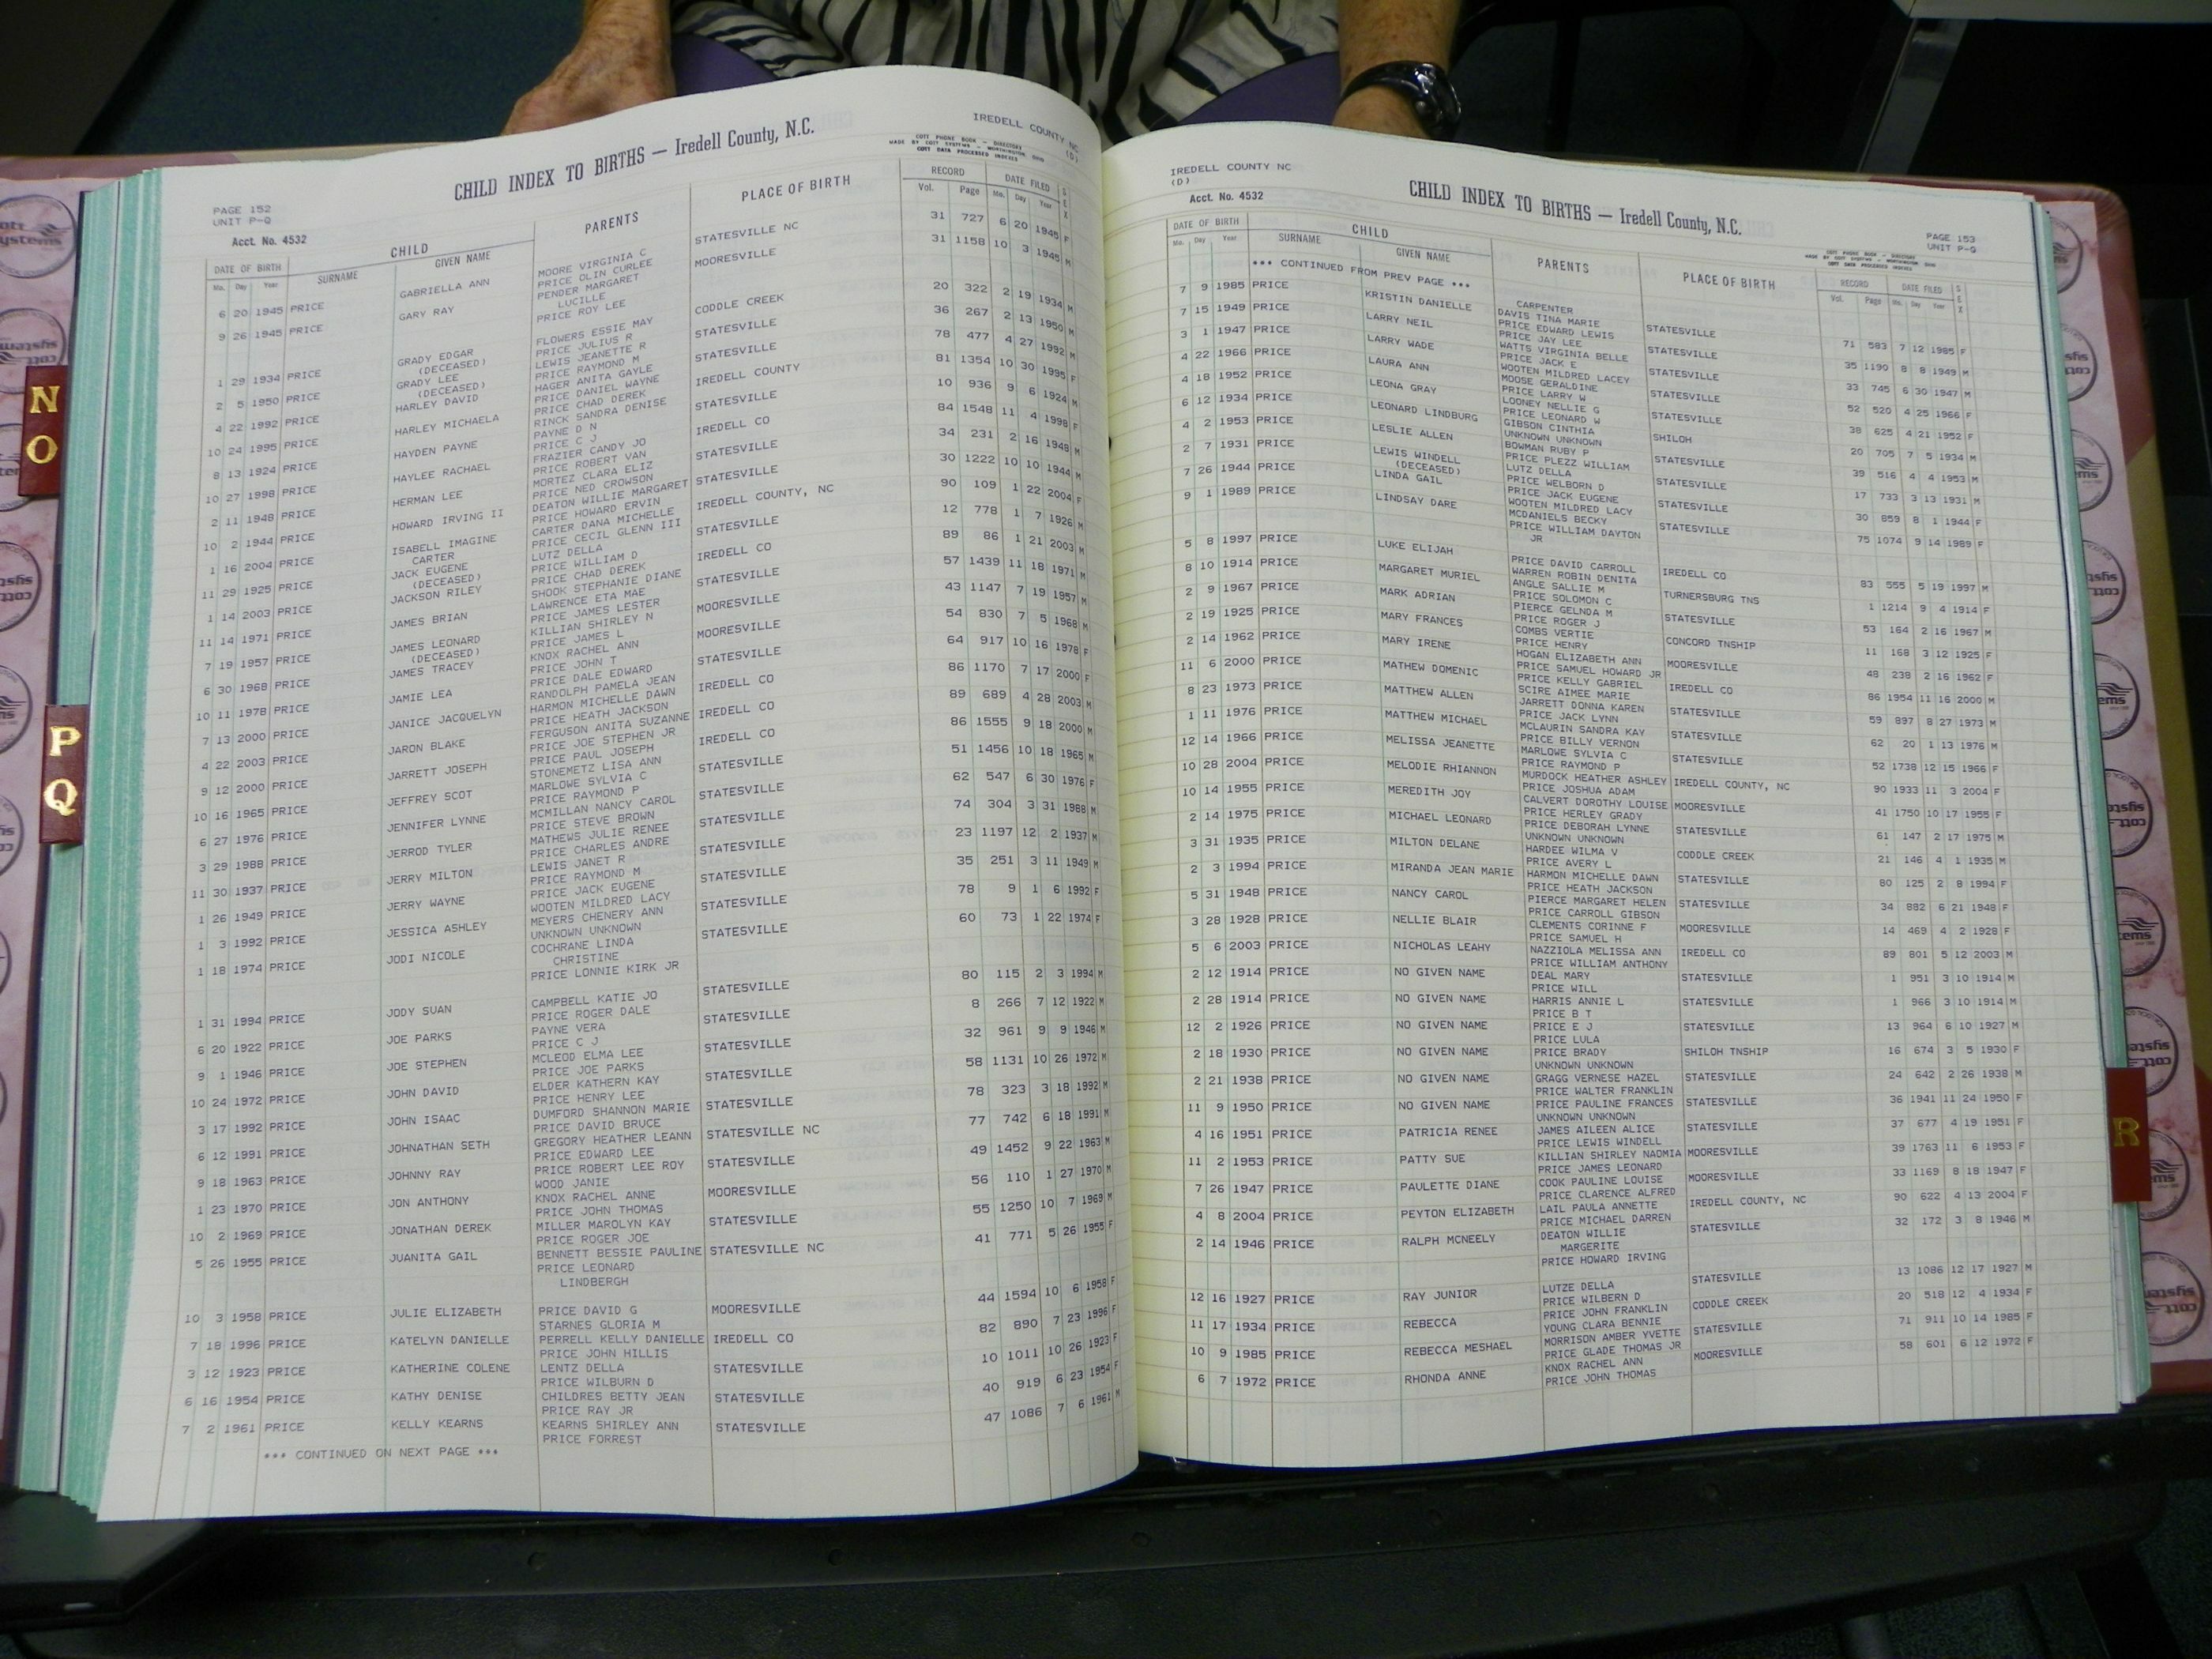 IREDELL COUNTY NC
(D)
CHILD INDEX TO BIRTHS — Iredell County, N.C.
COTT PHONE BOOK — DIRECTORY
MADE BY COTT SYSTEMS — WORTHINGTON, OHIO
COTT DATA PROCESSED INDEXES
PAGE 152
UNIT P-Q
Acct. No. 4532
DATE OF BIRTH CHILD PARENTS PLACE OF BIRTH RECORD DATE FILED SEX
Mo. Day Year SURNAME GIVEN NAME Vol. Page Mo. Day Year
6 20 1945 PRICE GABRIELLA ANN MOORE VIRGINIA C STATESVILLE NC 31 727 6 20 1945 F
PRICE OLIN CURLEE
9 26 1945 PRICE GARY RAY PENDER MARGARET MOORESVILLE 31 1158 10 3 1945 M
LUCILLE
PRICE ROY LEE
1 29 1934 PRICE GRADY EDGAR FLOWERS ESSIE MAY CODDLE CREEK 20 322 2 19 1934 M
(DECEASED) PRICE JULIUS R
2 5 1950 PRICE GRADY LEE LEWIS JEANETTE R STATESVILLE 36 267 2 13 1950 M
(DECEASED) PRICE RAYMOND M
4 22 1992 PRICE HARLEY DAVID HAGER ANITA GAYLE STATESVILLE 78 477 4 27 1992 M
PRICE DANIEL WAYNE
10 24 1995 PRICE HARLEY MICHAELA PRICE CHAD DEREK IREDELL COUNTY 81 1354 10 30 1995 F
RINCK SANDRA DENISE
8 13 1924 PRICE HAYDEN PAYNE PAYNE D N STATESVILLE 10 936 9 6 1924 M
PRICE C J
10 27 1998 PRICE HAYLEE RACHAEL FRAZIER CANDY JO IREDELL CO 84 1548 11 4 1998 F
PRICE ROBERT VAN
2 11 1948 PRICE HERMAN LEE MORTEZ CLARA ELIZ STATESVILLE 34 231 2 16 1948 M
PRICE NED CROWSON
10 2 1944 PRICE HOWARD IRVING II DEATON WILLIE MARGARET STATESVILLE 30 1222 10 10 1944 M
PRICE HOWARD ERVIN
1 16 2004 PRICE ISABELL IMAGINE CARTER DANA MICHELLE IREDELL COUNTY, NC 90 109 1 22 2004 F
CARTER PRICE CECIL GLENN III
11 29 1925 PRICE JACK EUGENE LUTZ DELLA STATESVILLE 12 778 1 7 1926 M
(DECEASED) PRICE WILLIAM D
1 14 2003 PRICE JACKSON RILEY PRICE CHAD DEREK IREDELL CO 89 86 1 21 2003 M
SHOOK STEPHANIE DIANE
11 14 1971 PRICE JAMES BRIAN LAWRENCE ETA MAE STATESVILLE 57 1439 11 18 1971 M
PRICE JAMES LESTER
7 19 1957 PRICE JAMES LEONARD KILLIAN SHIRLEY N MOORESVILLE 43 1147 7 19 1957 M
(DECEASED) PRICE JAMES L
6 30 1968 PRICE JAMES TRACEY KNOX RACHEL ANN MOORESVILLE 54 830 7 5 1968 M
PRICE JOHN T
10 11 1978 PRICE JAMIE LEA PRICE DALE EDWARD STATESVILLE 64 917 10 16 1978 F
RANDOLPH PAMELA JEAN
7 13 2000 PRICE JANICE JACQUELYN HARMON MICHELLE DAWN IREDELL CO 86 1170 7 17 2000 F
PRICE HEATH JACKSON
4 22 2003 PRICE JARON BLAKE FERGUSON ANITA SUZANNE IREDELL CO 89 689 4 28 2003 M
PRICE JOE STEPHEN JR
9 12 2000 PRICE JARRETT JOSEPH PRICE PAUL JOSEPH IREDELL CO 86 1555 9 18 2000 M
STONEMETZ LISA ANN
10 16 1965 PRICE JEFFREY SCOT MARLOWE SYLVIA C STATESVILLE 51 1456 10 18 1965 M
PRICE RAYMOND P
6 27 1976 PRICE JENNIFER LYNNE MCMILLAN NANCY CAROL STATESVILLE 62 547 6 30 1976 F
PRICE STEVE BROWN
3 29 1988 PRICE JERROD TYLER MATHEWS JULIE RENEE STATESVILLE 74 304 3 31 1988 M
PRICE CHARLES ANDRE
11 30 1937 PRICE JERRY MILTON LEWIS JANET R STATESVILLE 23 1197 12 2 1937 M
PRICE RAYMOND M
1 26 1949 PRICE JERRY WAYNE PRICE JACK EUGENE STATESVILLE 35 251 3 11 1949 M
WOOTEN MILDRED LACY
1 3 1992 PRICE JESSICA ASHLEY MEYERS CHENERY ANN STATESVILLE 78 9 1 6 1992 F
UNKNOWN UNKNOWN
1 18 1974 PRICE JODI NICOLE COCHRANE LINDA STATESVILLE 60 73 1 22 1974 F
CHRISTINE
PRICE LONNIE KIRK JR
1 31 1994 PRICE JODY SUAN CAMPBELL KATIE JO STATESVILLE 80 115 2 3 1994 M
PRICE ROGER DALE
6 20 1922 PRICE JOE PARKS PAYNE VERA STATESVILLE 8 266 7 12 1922 M
PRICE C J
9 1 1946 PRICE JOE STEPHEN MCLEOD ELMA LEE STATESVILLE 32 961 9 9 1946 M
PRICE JOE PARKS
10 24 1972 PRICE JOHN DAVID ELDER KATHERN KAY STATESVILLE 58 1131 10 26 1972 M
PRICE HENRY LEE
3 17 1992 PRICE JOHN ISAAC DUMFORD SHANNON MARIE STATESVILLE 78 323 3 18 1992 M
PRICE DAVID BRUCE
6 12 1991 PRICE JOHNATHAN SETH GREGORY HEATHER LEANN STATESVILLE NC 77 742 6 18 1991 M
PRICE EDWARD LEE
9 18 1963 PRICE JOHNNY RAY PRICE ROBERT LEE ROY STATESVILLE 49 1452 9 22 1963 M
WOOD JANIE
1 23 1970 PRICE JON ANTHONY KNOX RACHEL ANNE MOORESVILLE 56 110 1 27 1970 M
PRICE JOHN THOMAS
10 2 1969 PRICE JONATHAN DEREK MILLER MAROLYN KAY STATESVILLE 55 1250 10 7 1969 M
PRICE ROGER JOE
5 26 1955 PRICE JUANITA GAIL BENNETT BESSIE PAULINE STATESVILLE NC 41 771 5 26 1955 F
PRICE LEONARD
LINDBERGH
10 3 1958 PRICE JULIE ELIZABETH PRICE DAVID G MOORESVILLE 44 1594 10 6 1958 F
STARNES GLORIA M
7 18 1996 PRICE KATELYN DANIELLE PERRELL KELLY DANIELLE IREDELL CO 82 890 7 23 1996 F
PRICE JOHN HILLIS
3 12 1923 PRICE KATHERINE COLENE LENTZ DELLA STATESVILLE 10 1011 10 26 1923 F
PRICE WILBURN D
6 16 1954 PRICE KATHY DENISE CHILDRES BETTY JEAN STATESVILLE 40 919 6 23 1954 F
PRICE RAY JR
7 2 1961 PRICE KELLY KEARNS KEARNS SHIRLEY ANN STATESVILLE 47 1086 7 6 1961 M
PRICE FORREST
*** CONTINUED ON NEXT PAGE ***
IREDELL COUNTY NC
(D)
Acct. No. 4532
CHILD INDEX TO BIRTHS — Iredell County, N.C.
PAGE 153
UNIT P-Q
COTT PHONE BOOK — DIRECTORY
MADE BY COTT SYSTEMS — WORTHINGTON, OHIO
COTT DATA PROCESSED INDEXES
DATE OF BIRTH CHILD PARENTS PLACE OF BIRTH RECORD DATE FILED SEX
Mo. Day Year SURNAME GIVEN NAME Vol. Page Mo. Day Year
*** CONTINUED FROM PREV PAGE ***
CARPENTER
7 9 1985 PRICE KRISTIN DANIELLE DAVIS TINA MARIE STATESVILLE 71 583 7 12 1985 F
PRICE EDWARD LEWIS
7 15 1949 PRICE LARRY NEIL PRICE JAY LEE STATESVILLE 35 1190 8 8 1949 M
WATTS VIRGINIA BELLE
3 1 1947 PRICE LARRY WADE PRICE JACK E STATESVILLE 33 745 6 30 1947 M
WOOTEN MILDRED LACEY
4 22 1966 PRICE LAURA ANN MOOSE GERALDINE STATESVILLE 52 520 4 25 1966 F
PRICE LARRY W
4 18 1952 PRICE LEONA GRAY LOONEY NELLIE G SHILOH 38 625 4 21 1952 F
PRICE LEONARD W
6 12 1934 PRICE LEONARD LINDBURG GIBSON CINTHIA STATESVILLE 20 705 7 5 1934 M
UNKNOWN UNKNOWN
4 2 1953 PRICE LESLIE ALLEN BOWMAN RUBY P STATESVILLE 39 516 4 4 1953 M
PRICE PLEZZ WILLIAM
2 7 1931 PRICE LEWIS WINDELL LUTZ DELLA STATESVILLE 17 733 3 13 1931 M
(DECEASED) PRICE WELBORN D
7 26 1944 PRICE LINDA GAIL PRICE JACK EUGENE STATESVILLE 30 859 8 1 1944 F
WOOTEN MILDRED LACY
9 1 1989 PRICE LINDSAY DARE MCDANIELS BECKY STATESVILLE 75 1074 9 14 1989 F
PRICE WILLIAM DAYTON
JR
5 8 1997 PRICE LUKE ELIJAH PRICE DAVID CARROLL IREDELL CO 83 555 5 19 1997 M
WARREN ROBIN DENITA
8 10 1914 PRICE MARGARET MURIEL ANGLE SALLIE M TURNERSBURG TNS 1 1214 9 4 1914 F
PRICE SOLOMON C
2 9 1967 PRICE MARK ADRIAN PIERCE GELNDA M STATESVILLE 53 164 2 16 1967 M
PRICE ROGER J
2 19 1925 PRICE MARY FRANCES COMBS VERTIE CONCORD TNSHIP 11 168 3 12 1925 F
PRICE HENRY
2 14 1962 PRICE MARY IRENE HOGAN ELIZABETH ANN MOORESVILLE 48 238 2 16 1962 F
PRICE SAMUEL HOWARD JR
11 6 2000 PRICE MATHEW DOMENIC PRICE KELLY GABRIEL IREDELL CO 86 1954 11 16 2000 M
SCIRE AIMEE MARIE
8 23 1973 PRICE MATTHEW ALLEN JARRETT DONNA KAREN STATESVILLE 59 897 8 27 1973 M
PRICE JACK LYNN
1 11 1976 PRICE MATTHEW MICHAEL MCLAURIN SANDRA KAY STATESVILLE 62 20 1 13 1976 M
PRICE BILLY VERNON
12 14 1966 PRICE MELISSA JEANETTE MARLOWE SYLVIA C STATESVILLE 52 1738 12 15 1966 F
PRICE RAYMOND P
10 28 2004 PRICE MELODIE RHIANNON MURDOCK HEATHER ASHLEY IREDELL COUNTY, NC 90 1933 11 3 2004 F
PRICE JOSHUA ADAM
10 14 1955 PRICE MEREDITH JOY CALVERT DOROTHY LOUISE MOORESVILLE 41 1750 10 17 1955 F
PRICE HERLEY GRADY
2 14 1975 PRICE MICHAEL LEONARD PRICE DEBORAH LYNNE STATESVILLE 61 147 2 17 1975 M
UNKNOWN UNKNOWN
3 31 1935 PRICE MILTON DELANE HARDEE WILMA V CODDLE CREEK 21 146 4 1 1935 M
PRICE AVERY L
2 3 1994 PRICE MIRANDA JEAN MARIE HARMON MICHELLE DAWN STATESVILLE 80 125 2 8 1994 F
PRICE HEATH JACKSON
5 31 1948 PRICE NANCY CAROL PIERCE MARGARET HELEN STATESVILLE 34 882 6 21 1948 F
PRICE CARROLL GIBSON
3 28 1928 PRICE NELLIE BLAIR CLEMENTS CORINNE F MOORESVILLE 14 469 4 2 1928 F
PRICE SAMUEL H
5 6 2003 PRICE NICHOLAS LEAHY NAZZIOLA MELISSA ANN IREDELL CO 89 801 5 12 2003 M
PRICE WILLIAM ANTHONY
2 12 1914 PRICE NO GIVEN NAME DEAL MARY STATESVILLE 1 951 3 10 1914 M
PRICE WILL
2 28 1914 PRICE NO GIVEN NAME HARRIS ANNIE L STATESVILLE 1 966 3 10 1914 M
PRICE B T
12 2 1926 PRICE NO GIVEN NAME PRICE E J STATESVILLE 13 964 6 10 1927 M
PRICE LULA
2 18 1930 PRICE NO GIVEN NAME PRICE BRADY SHILOH TNSHIP 16 674 3 5 1930 F
UNKNOWN UNKNOWN
2 21 1938 PRICE NO GIVEN NAME GRAGG VERNESE HAZEL STATESVILLE 24 642 2 26 1938 M
PRICE WALTER FRANKLIN
11 9 1950 PRICE NO GIVEN NAME PRICE PAULINE FRANCES STATESVILLE 36 1941 11 24 1950 F
UNKNOWN UNKNOWN
4 16 1951 PRICE PATRICIA RENEE JAMES AILEEN ALICE STATESVILLE 37 677 4 19 1951 F
PRICE LEWIS WINDELL
11 2 1953 PRICE PATTY SUE KILLIAN SHIRLEY NAOMIA MOORESVILLE 39 1763 11 6 1953 F
PRICE JAMES LEONARD
7 26 1947 PRICE PAULETTE DIANE COOK PAULINE LOUISE MOORESVILLE 33 1169 8 18 1947 F
PRICE CLARENCE ALFRED
4 8 2004 PRICE PEYTON ELIZABETH LAIL PAULA ANNETTE IREDELL COUNTY, NC 90 622 4 13 2004 F
PRICE MICHAEL DARREN
2 14 1946 PRICE RALPH MCNEELY DEATON WILLIE STATESVILLE 32 172 3 8 1946 M
MARGERITE
PRICE HOWARD IRVING
12 16 1927 PRICE RAY JUNIOR LUTZE DELLA STATESVILLE 13 1086 12 17 1927 M
PRICE WILBERN D
11 17 1934 PRICE REBECCA PRICE JOHN FRANKLIN CODDLE CREEK 20 518 12 4 1934 F
YOUNG CLARA BENNIE
10 9 1985 PRICE REBECCA MESHAEL MORRISON AMBER YVETTE STATESVILLE 71 911 10 14 1985 F
PRICE GLADE THOMAS JR
6 7 1972 PRICE RHONDA ANNE KNOX RACHEL ANN MOORESVILLE 58 601 6 12 1972 F
PRICE JOHN THOMAS
N
O
P
Q
R